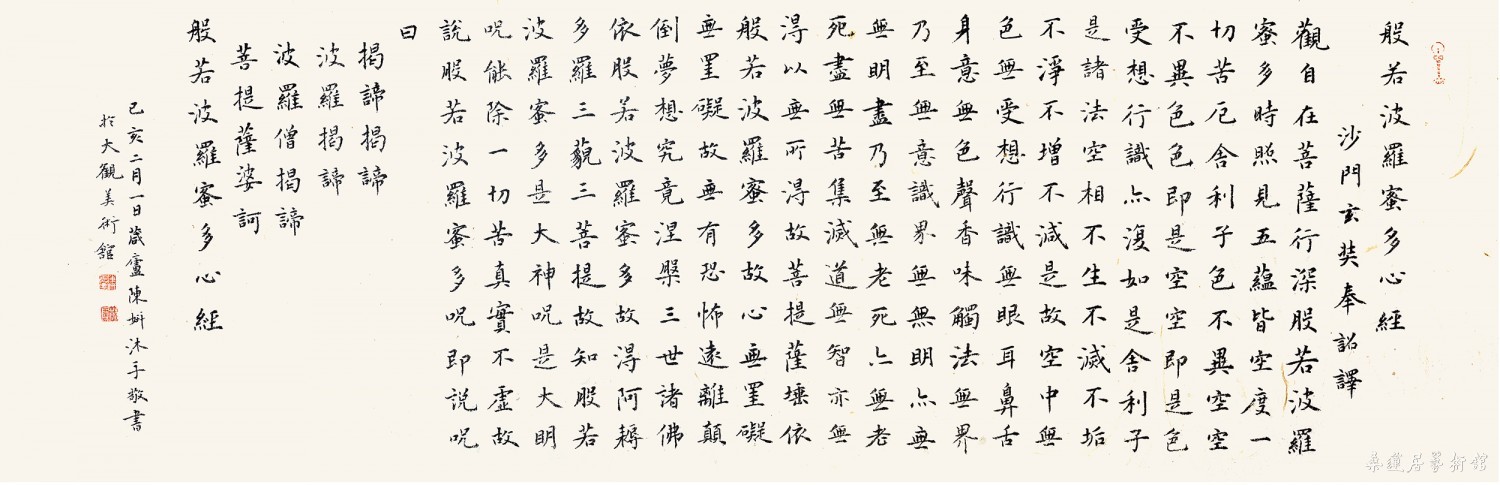 般若波羅蜜多心經
沙門玄奘奉詔譯
觀自在菩薩行深般若波羅
蜜多時照見五蘊皆空度一
切苦厄舍利子色不異空空
不異色色即是空空即是色
受想行識亦復如是舍利子
是諸法空相不生不滅不垢
不淨不增不減是故空中無
色無受想行識無眼耳鼻舌
身意無色聲香味觸法無界
乃至無意識界無無明亦無
無明盡乃至無老死亦無老
死盡無苦集滅道無智亦無
得以無所得故菩提薩埵依
般若波羅蜜多故心無罣礙
無罣礙故無有恐怖遠離顛
倒夢想究竟涅槃三世諸佛
依般若波羅蜜多故得阿耨
多羅三藐三菩提故知般若
波羅蜜多是大神呪是大明
呪能除一切苦真實不虛故
說般若波羅蜜多呪即説呪
曰
揭諦揭諦
波羅揭諦
波羅僧揭諦
菩提薩婆訶
般若波羅蜜多心經
己亥二月一日葴廬陳斠沐手敬書
於大觀美術館